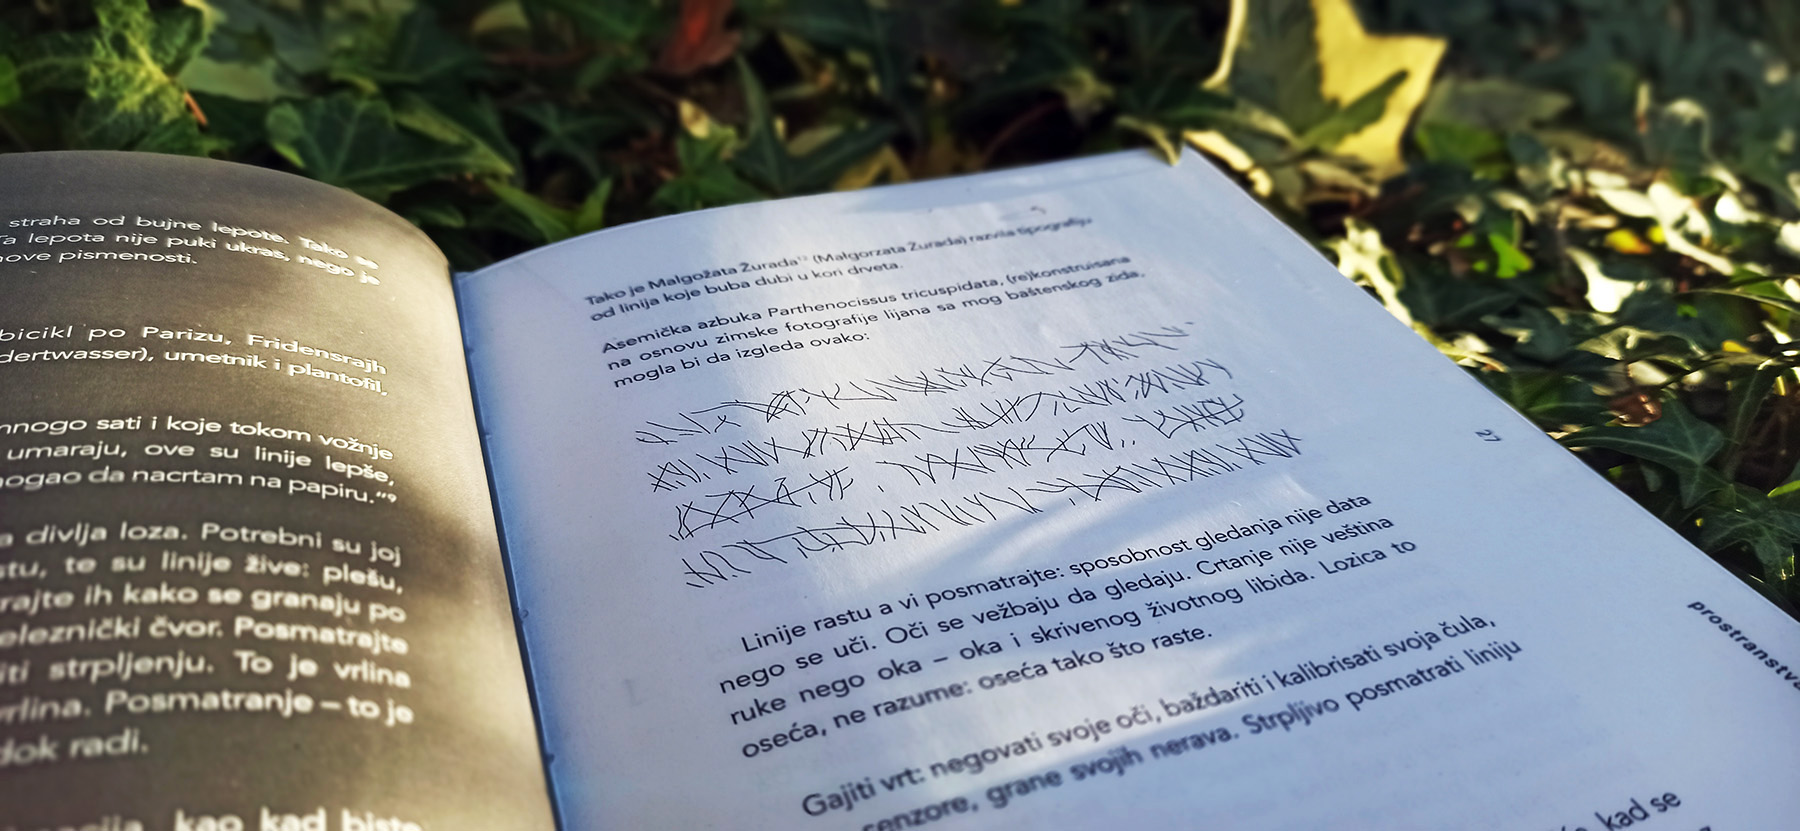 straha od bujne lepote. Tako se
Ta lepota nije puki ukras, nego je
nove pismenosti.
bicikl po Parizu, Fridensrajh
dertwasser), umetnik i plantofil,
mnogo sati i koje tokom vožnje
umaraju, ove su linije lepše,
mogao da nacrtam na papiru.“⁹
a divlja loza. Potrebni su joj
stu, te su linije žive: plešu,
rajte ih kako se granaju po
eleznički čvor. Posmatrajte
iti strpljenju. To je vrlina
vrlina. Posmatranje – to je
dok radi.
kao kad biste
Tako je Malgožata Žurada¹² (Małgorzata Żurada) razvila tipografiju
od linija koje buba dubi u kori drveta.
Asemička azbuka Parthenocissus tricuspidata, (re)konstruisana
na osnovu zimske fotografije lijana sa mog baštenskog zida,
mogla bi da izgleda ovako:
Linije rastu a vi posmatrajte: sposobnost gledanja nije data
nego se uči. Oči se vežbaju da gledaju. Crtanje nije veština
ruke nego oka – oka i skrivenog životnog libida. Lozica to
oseća, ne razume: oseća tako što raste.
Gajiti vrt: negovati svoje oči, baždariti i kalibrisati svoja čula,
senzore, grane svojih nerava. Strpljivo posmatrati liniju
kad se
27
prostranstva